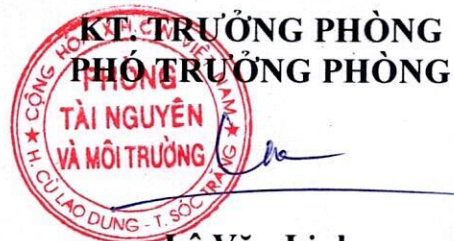 KT. TRƯỞNG PHÒNG
PHÓ TRƯỞNG PHÒNG
CỘNG HÒA X.H.C.N VIỆT NAM
PHÒNG
TÀI NGUYÊN
VÀ MÔI TRƯỜNG
★ H. CÙ LAO DUNG - T. SÓC TRĂNG ★
Lê Văn